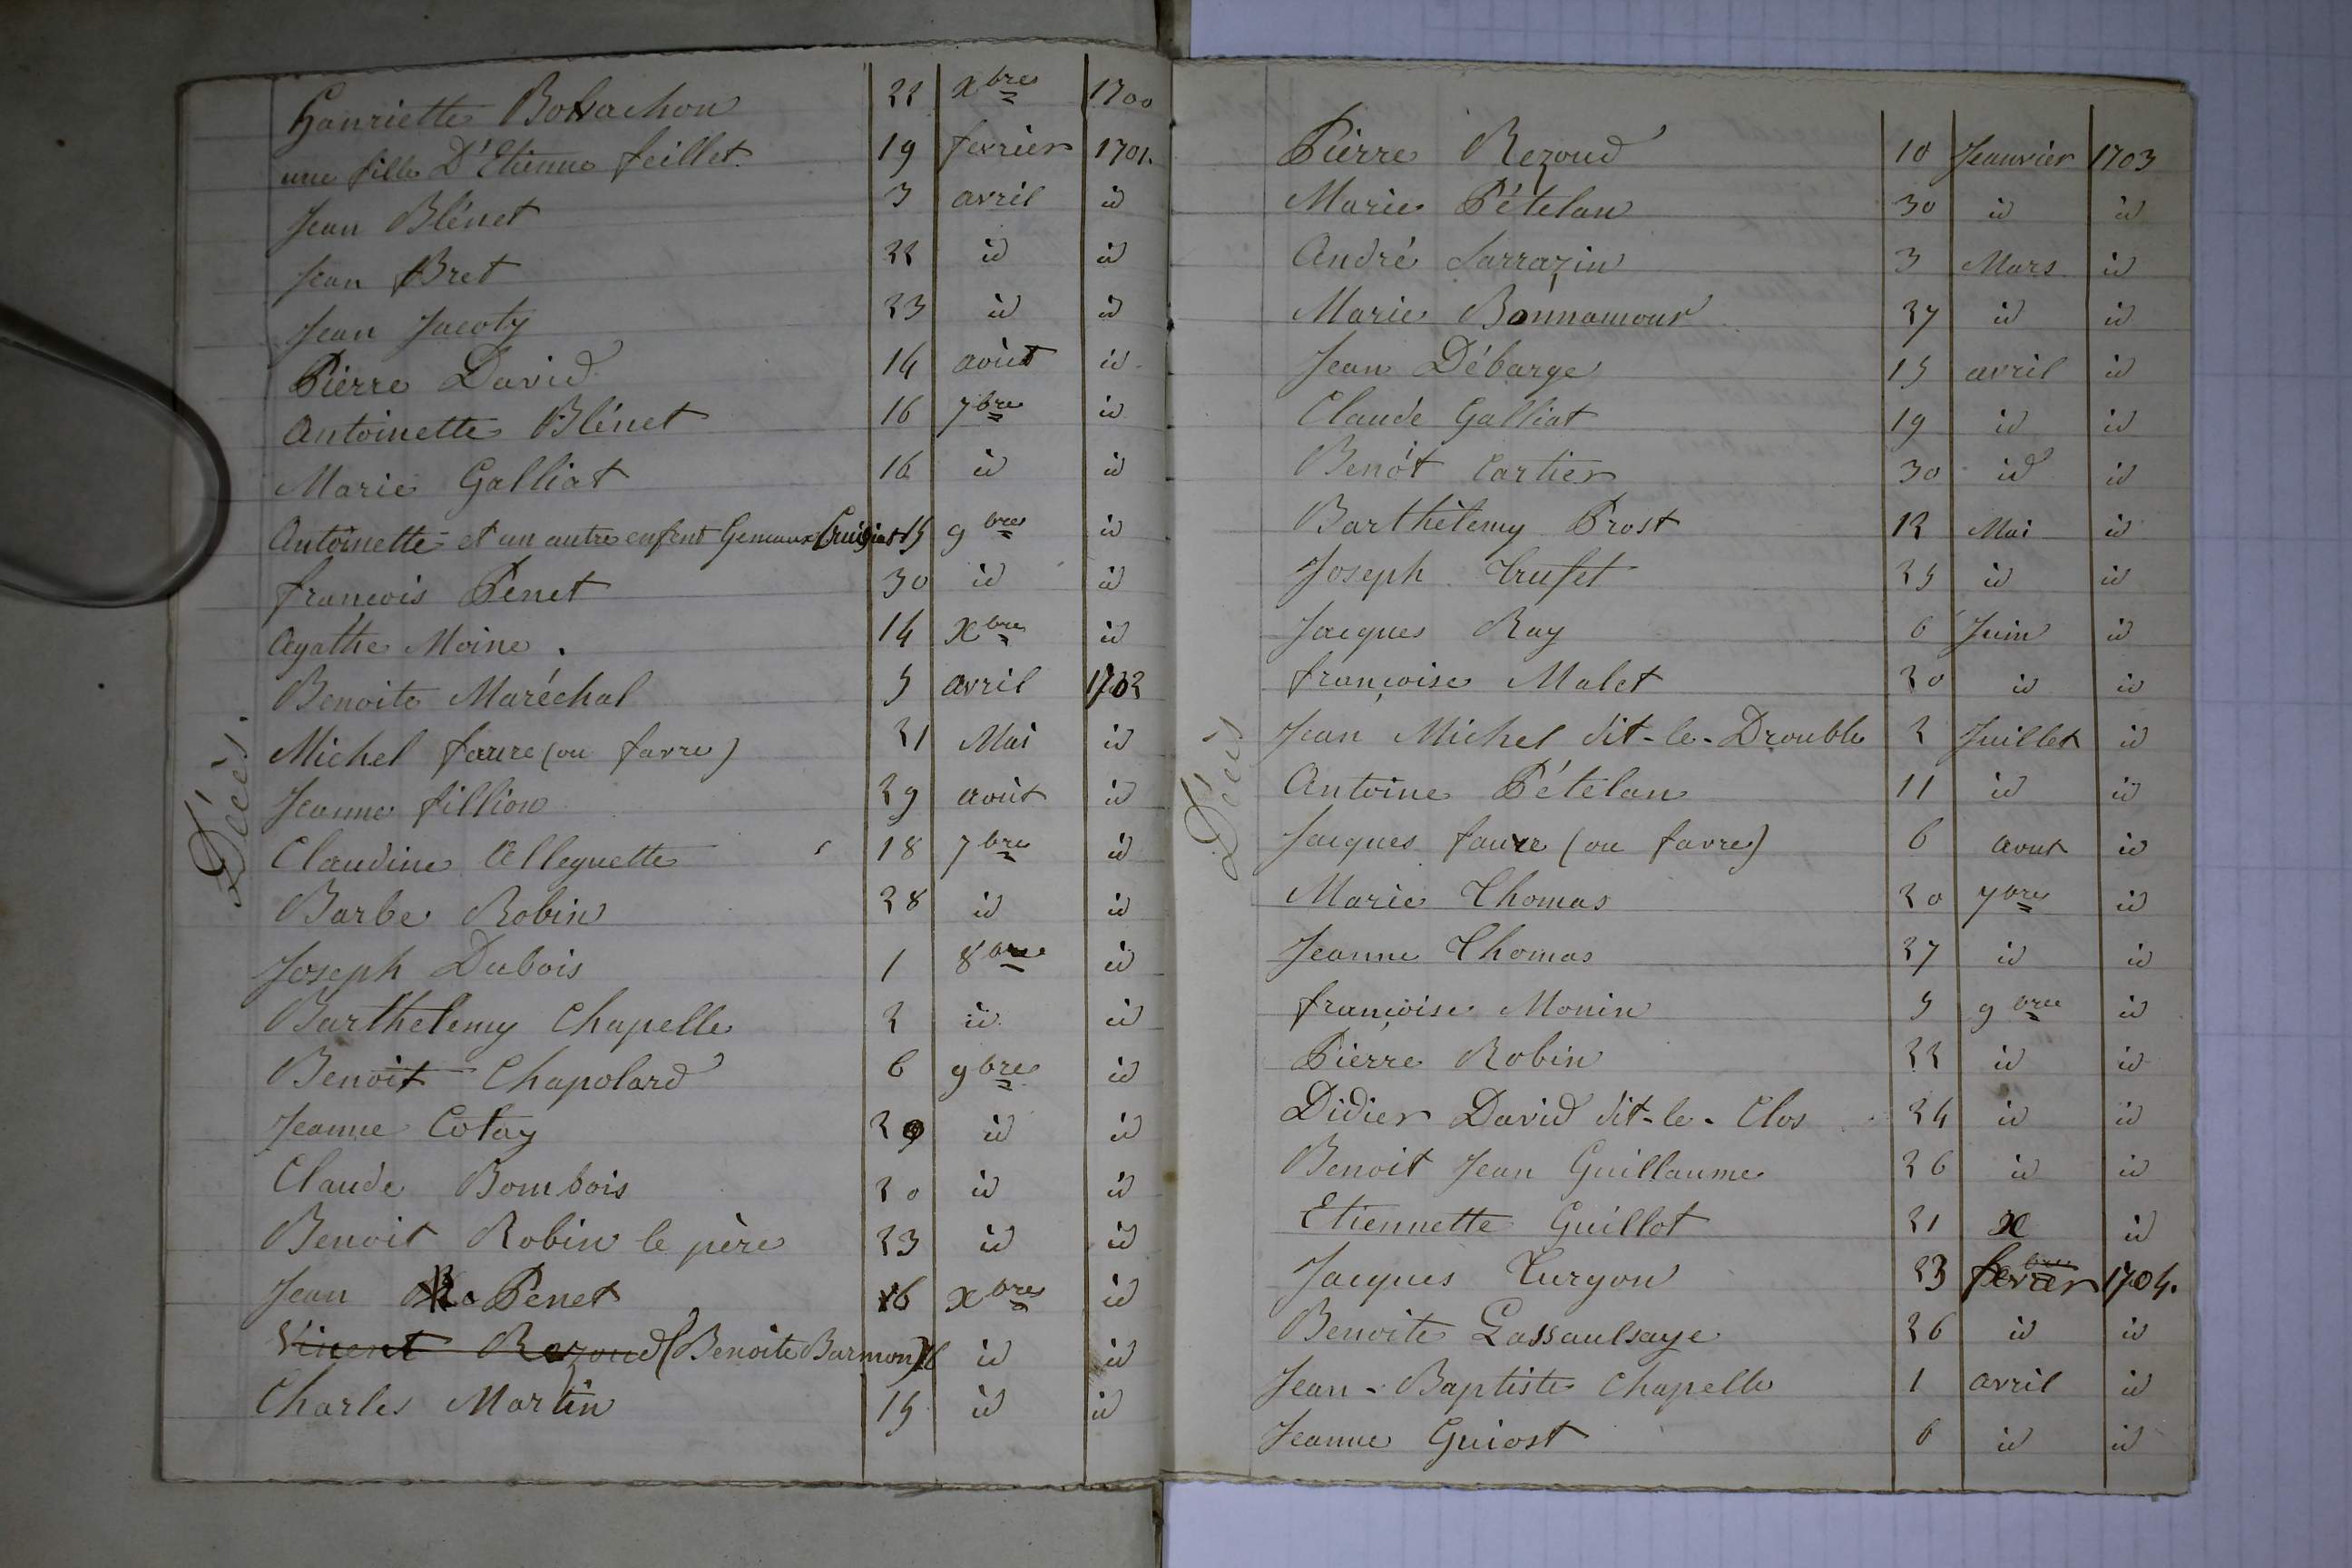 Décès.
hanriette Bolvachon 22 xbre 1700
une fille D'Etienne feillet. 19 fevrier 1701.
Jean Blénet 3 avril id
Jean Bret 22 id id
Jean Jacoty 23 id id
Pierre David 14 août id
Antoinette Blénet 16 7bre id
Marie Galliat 16 id id
Antoinette et un autre enfent Gemeaux Cruiziat 15 9bre id
francois Penet 30 id id
Agathe Moine. 14 xbre id
Benoite Maréchal 5 avril 1702
Michel faure (ou favre) 21 Mai id
Jeanne fillion 29 août id
Claudine Alleguette 18 7bre id
Barbe Robin 28 id id
Joseph Dubois 1 8bre id
Barthelemy Chapelle 2 id id
Benoit Chapolard 6 9bre id
Jeanne Cotay 20 id id
Claude Bombois 20 id id
Benoit Robin le père 23 id id
Jean Penet 16 xbre id
Vincent Rezoud (Benoite Burmon) 16 id id
Charles Martin 15 id id
Décès
Pierre Rezoud 10 Jeanvier 1703
Marie Pételan 30 id id
André Sarrazin 3 Mars id
Marie Bonnamour 27 id id
Jean Débarge 15 avril id
Claude Galliat 19 id id
Benoît Cartier 30 id id
Barthélemy Prost 12 Mai id
Joseph Trufet 25 id id
Jacques Ray 6 Juin id
françoise Malet 20 id id
Jean Michel dit-le-Drouble 2 Juillet id
Antoine Pételan 11 id id
Jacques faure (ou favre) 6 aout id
Marie Thomas 20 7bre id
Jeanne Thomas 27 id id
françoise Monin 5 9bre id
Pierre Robin 22 id id
Didier David dit-le-Clos 24 id id
Benoit Jean Guillaume 26 id id
Etiennette Guillot 21 x id
Jacques Turgon 23 fevrier 1704.
Benoite Lassaulsaye 26 id id
Jean-Baptiste Chapelle 1 avril id
Jeanne Guiost 6 id id